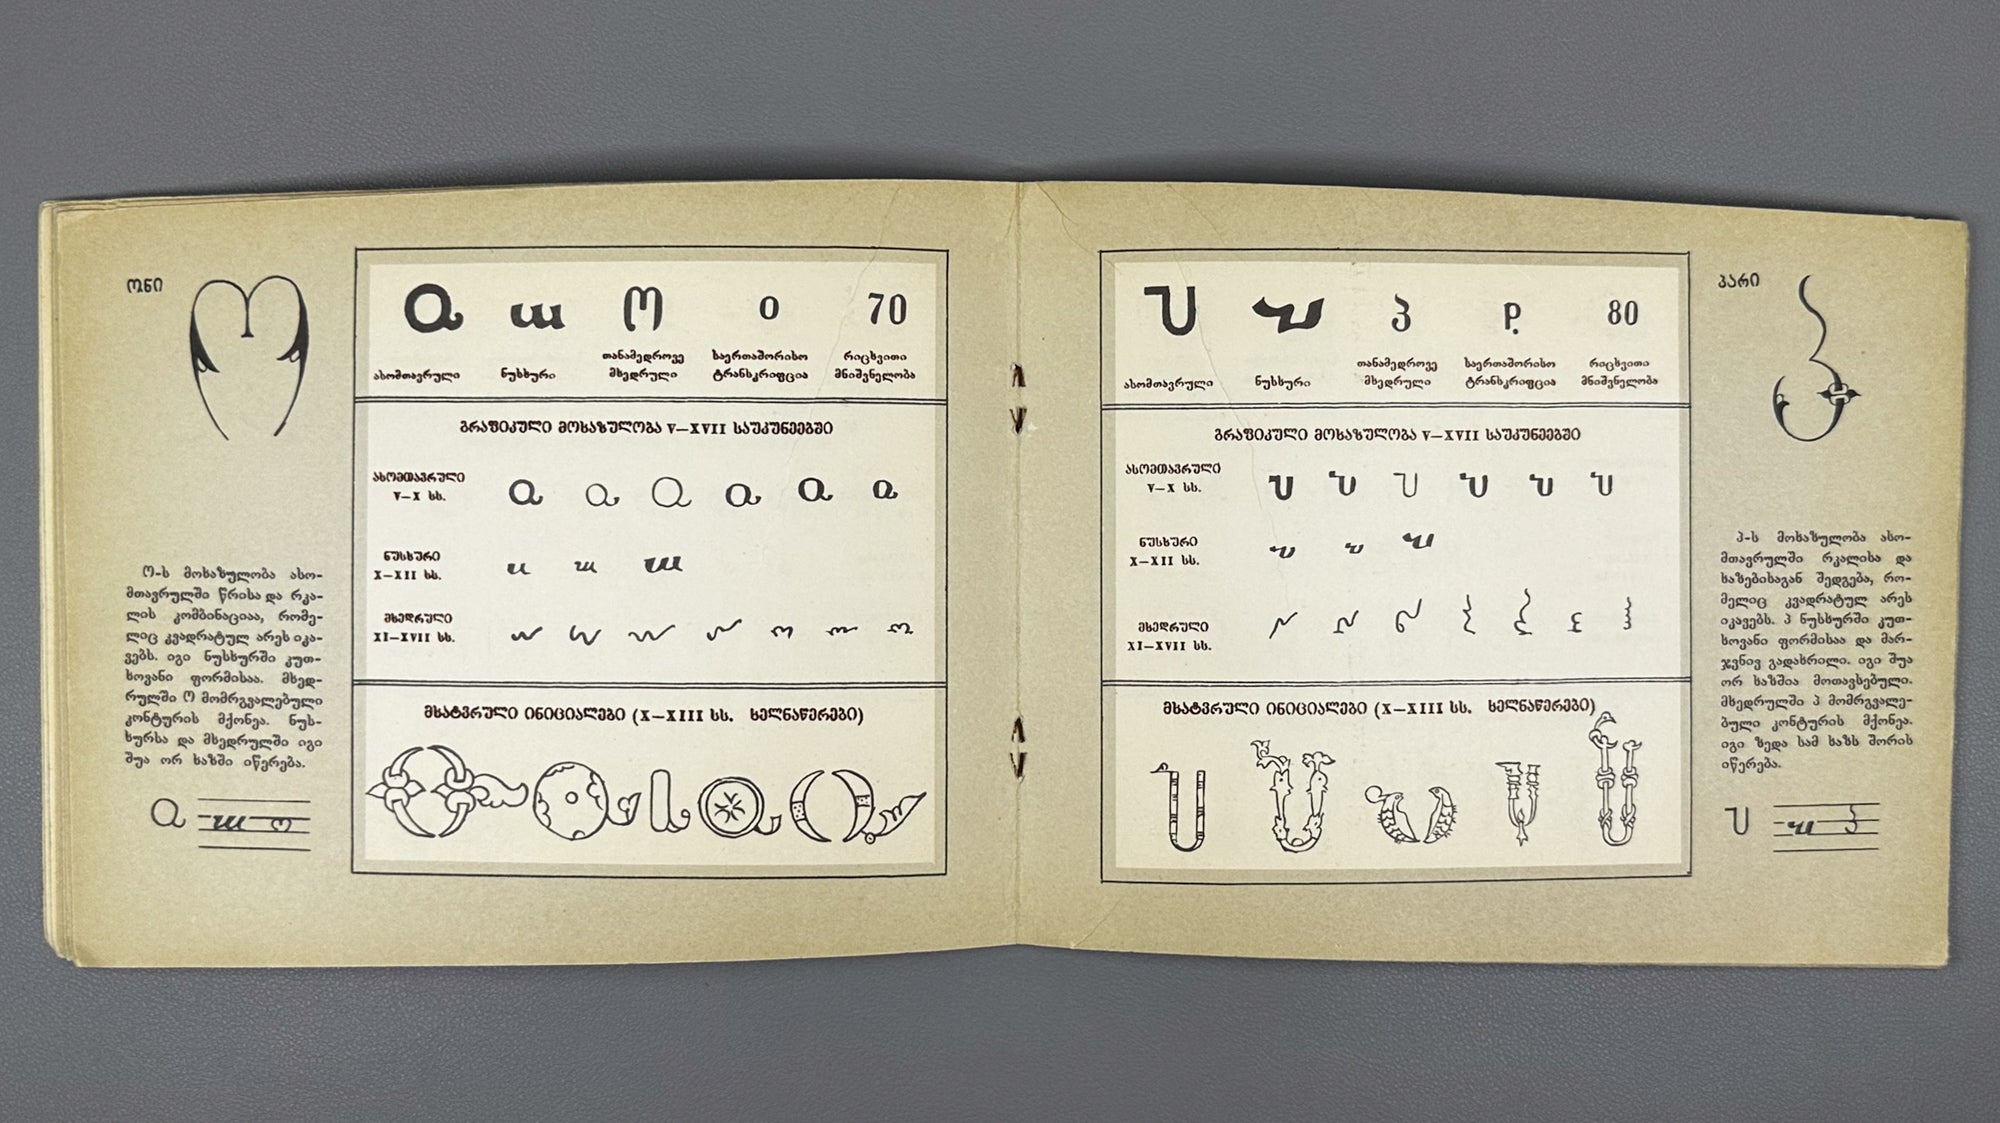 ონი
Ⴍ ⴍ ო o 70
ასომთავრული ნუსხური თანამედროვე მხედრული საერთაშორისო ტრანსკრიფცია რიცხვითი მნიშვნელობა
გრაფიკული მოხაზულობა V—XVII საუკუნეებში
ასომთავრული
V—X სს.
ნუსხური
X—XII სს.
მხედრული
XI—XVII სს.
მხატვრული ინიციალები (X—XIII სს. ხელნაწერები)
Ო-ს მოხაზულობა ასო-
მთავრულში წრისა და რკა-
ლის კომბინაციაა, რომე-
ლიც კვადრატულ არეს იკა-
ვებს. იგი ნუსხურში კუთ-
ხოვანი ფორმისაა. მხედ-
რულში Ო მომრგვალებული
კონტურის მქონეა. ნუს-
ხურსა და მხედრულში იგი
შუა ორ ხაზში იწერება.
Ⴍ ⴍ ო
პარი
Ⴎ ⴎ პ p̣ 80
ასომთავრული ნუსხური თანამედროვე მხედრული საერთაშორისო ტრანსკრიფცია რიცხვითი მნიშვნელობა
გრაფიკული მოხაზულობა V—XVII საუკუნეებში
ასომთავრული
V—X სს.
ნუსხური
X—XII სს.
მხედრული
XI—XVII სს.
მხატვრული ინიციალები (X—XIII სს. ხელნაწერები)
პ-ს მოხაზულობა ასო-
მთავრულში რკალისა და
ხაზებისაგან შედგება, რო-
მელიც კვადრატულ არეს
იკავებს. პ ნუსხურში კუთ-
ხოვანი ფორმისაა და მარ-
ჯვნივ გადახრილი. იგი შუა
ორ ხაზშია მოთავსებული.
მხედრულში პ მომრგვალე-
ბული კონტურის მქონეა.
იგი ზედა სამ ხაზს შორის
იწერება.
Ⴎ ⴎ პ